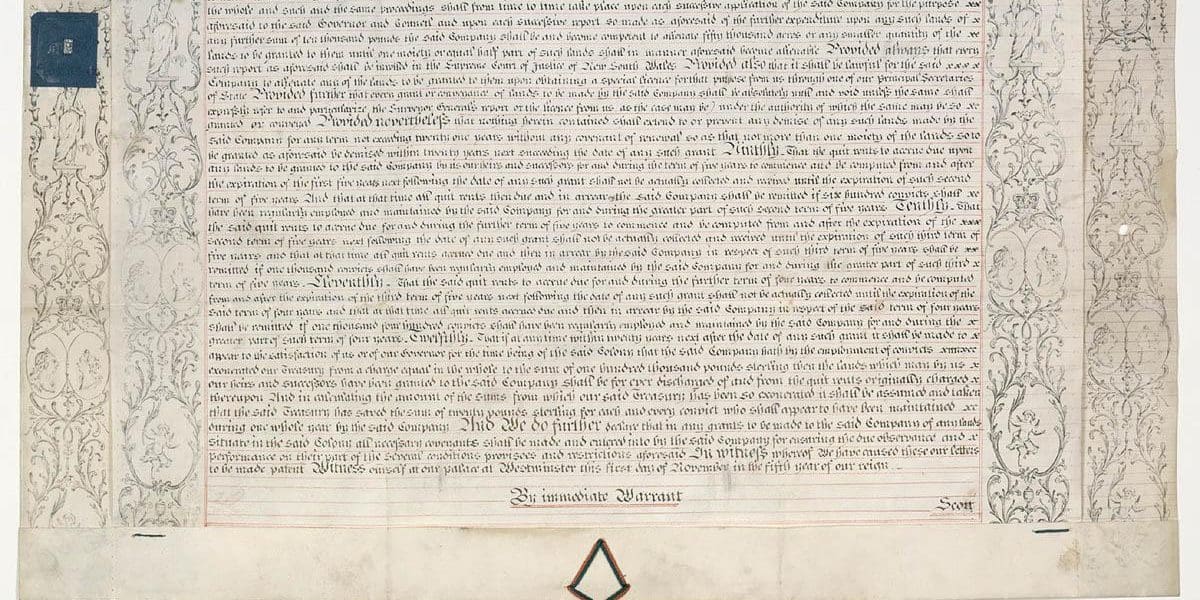 the whole and such and the same proceedings shall from time to time take place upon each successive application of the said Company for the purpose xx
aforesaid to the said Governor and Council and upon each successive report so made as aforesaid of the further expenditure upon any such lands of x
any further sum of ten thousand pounds the said Company shall be and become competent to alienate fifty thousand acres or any smaller quantity of the xx
lands to be granted to them until one moiety or equal half part of such lands shall in manner aforesaid become alienable Provided always that every
such report as aforesaid shall be inrolled in the Supreme Court of Justice of New South Wales Provided also that it shall be lawful for the said xxxx
Company to alienate any of the lands to be granted to them upon obtaining a special licence for that purpose from us through one of our principal Secretaries
of State Provided further that every grant or conveyance of lands to be made by the said Company shall be absolutely null and void unless the same shall
expressly refer to and particularize the Surveyor Generals report or the licence from us as the case may be under the authority of which the same may be so xx
granted or conveyed Provided nevertheless that nothing herein contained shall extend to or prevent any demise of any such lands made by the
said Company for any term not exceeding twenty one years without any covenant of renewal so as that not more than one moiety of the lands so to
be granted as aforesaid be demised within twenty years next succeeding the date of any such grant Ninthly. That the quit rents to accrue due upon
any lands to be granted to the said Company by us our heirs and successors for and during the term of five years to commence and be computed from and after
the expiration of the first five years next following the date of any such grant shall not be actually collected and received until the expiration of such second
term of five years And that at that time all quit rents then due and in arrear by the said Company shall be remitted if six hundred convicts shall xx
have been regularly employed and maintained by the said Company for and during the greater part of such second term of five years Tenthly. That
the said quit rents to accrue due for and during the further term of five years to commence and be computed from and after the expiration of the xxx
second term of five years next following the date of any such grant shall not be actually collected and received until the expiration of such third term of
five years and that at that time all quit rents accrued due and then in arrear by the said Company in respect of such third term of five years shall be xx
remitted if one thousand convicts shall have been regularly employed and maintained by the said Company for and during the greater part of such third x
term of five years. Eleventhly. That the said quit rents to accrue due for and during the further term of four years to commence and be computed
from and after the expiration of the third term of five years next following the date of any such grant shall not be actually collected until the expiration of the
said term of four years and that at that time all quit rents accrued due and then in arrear by the said Company in respect of the said term of four years
shall be remitted if one thousand four hundred convicts shall have been regularly employed and maintained by the said Company for and during the x
greater part of such term of four years. Twelfthly. That if at any time within twenty years next after the date of any such grant it shall be made to x
appear to the satisfaction of us or of our Governor for the time being of the said Colony that the said Company hath by the employment of convicts
exonerated our Treasury from a charge equal in the whole to the sum of one hundred thousand pounds sterling then the lands which may by us x
our heirs and successors have been granted to the said Company shall be for ever discharged of and from the quit rents originally charged x
thereupon And in calculating the amount of the sums from which our said Treasury has been so exonerated it shall be assumed and taken
that the said Treasury has saved the sum of twenty pounds sterling for each and every convict who shall appear to have been maintained xx
during one whole year by the said Company And We do further declare that in any grants to be made to the said Company of any lands
situate in the said Colony all necessary covenants shall be made and entered into by the said Company for ensuring the due observance and x
performance on their part of the several conditions provisoes and restrictions aforesaid In witness whereof We have caused these our letters
to be made patent Witness ourself at our palace at Westminster this first day of November in the fifth year of our reign
By immediate Warrant
Scott